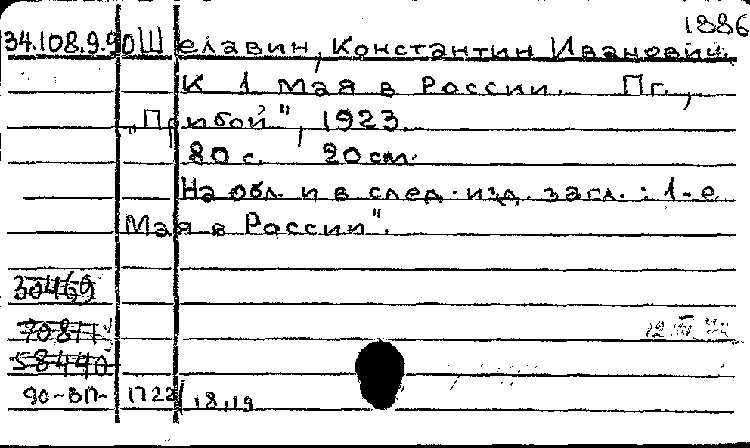 1886
34.108.9.90 Шелавин, Константин Иванович.
К 1 мая в России. Пг.,
„Прибой", 1923.
80 с. 20 см.
На обл. и в след. изд. загл.: 1-е
Мая в России".
30469
70811
58440
90-ВП- 1722/18,19